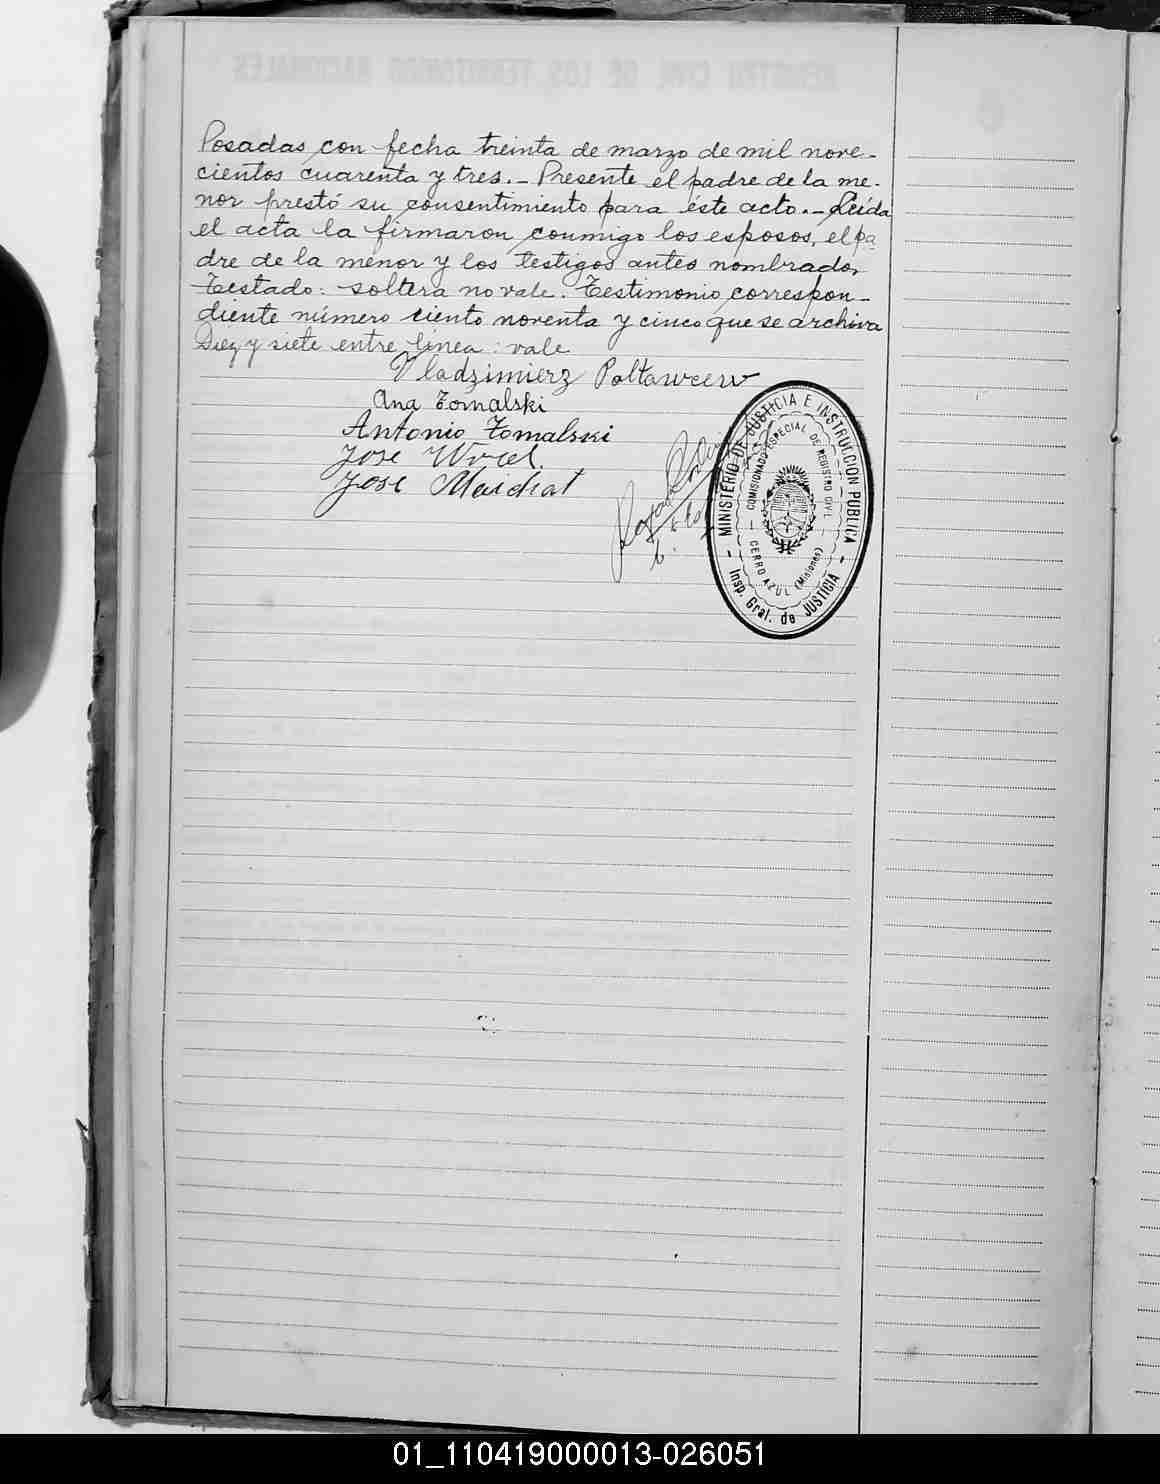 Posadas, con fecha treinta de marzo de mil nove-
cientos cuarenta y tres.- Presente el padre de la me-
nor prestó su consentimiento para éste acto.- Leída
el acta la firmaron conmigo los esposos, el pa
dre de la menor y los testigos antes nombrados,
Testado: soltera no vale. Testimonio correspon-
diente número ciento noventa y cinco que se archiva
Diez y siete entre línea: vale
Vladzimierz Poltawcew
Ana Tomalski
Antonio Tomalski
Jose
Jose
MINISTERIO DE JUSTICIA E INSTRUCCION PUBLICA
COMISIONADO ESPECIAL DE REGISTRO CIVIL
CERRO AZUL (Misiones)
Insp. Gral. de JUSTICIA
REGISTRO CIVIL DE LOS TERRITORIOS NACIONALES
01_110419000013-026051